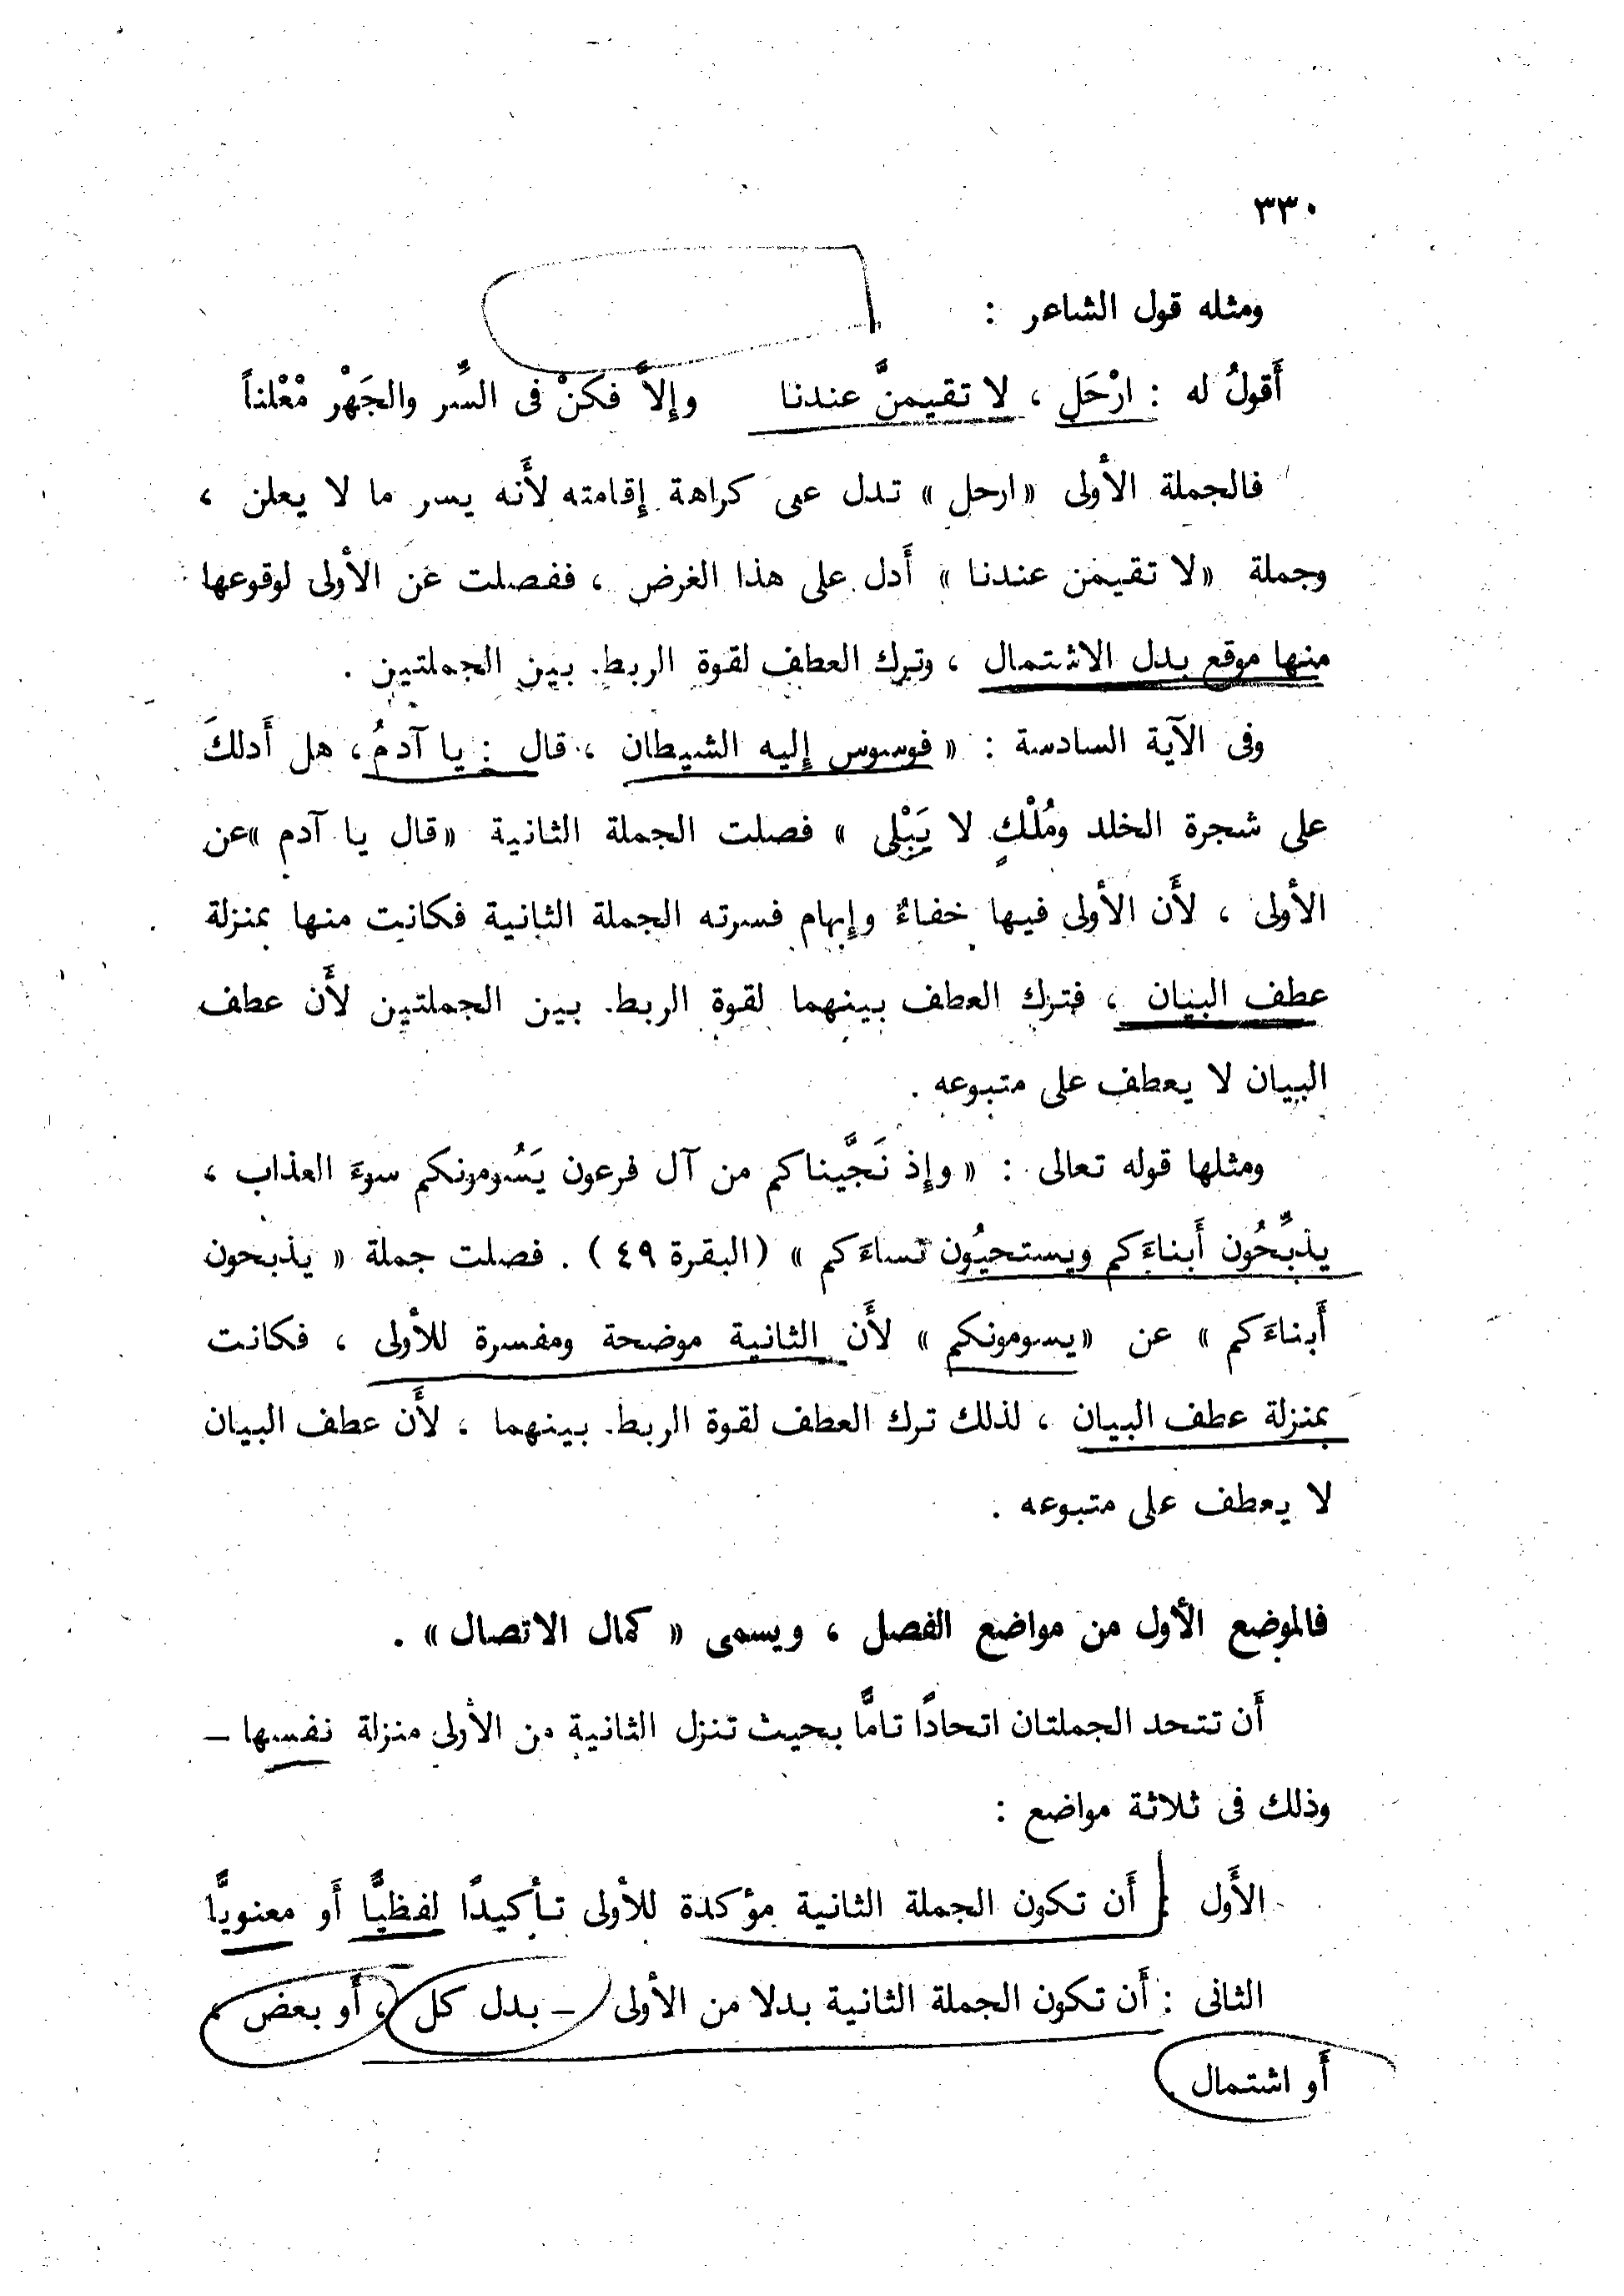 ٣٣٠
ومثله قول الشاعر :
أَقولُ له : ارْحَلِ ، لا تقيمنَّ عندنا وإلاَّ فكنْ فى السِّر والجَهْرِ مْعْلناً
فالجملة الأولى «ارحل» تدل على كراهة إقامته لأَنه يسر ما لا يعلن ،
وجملة «لا تقيمن عندنا» أَدل على هذا الغرض ، ففصلت عن الأولى لوقوعها
منها موقع بدل الاشتمال ، وترك العطف لقوة الربط بين الجملتين .
وفى الآية السادسة : « فوسوس إليه الشيطان ، قال : يا آدمُ ، هل أَدلكَ
على شجرة الخلد ومُلْكٍ لا يَبْلى » فصلت الجملة الثانية «قال يا آدم» عن
الأولى ، لأَن الأولى فيها خفاءٌ وإبهام فسرته الجملة الثانية فكانت منها بمنزلة
عطف البيان ، فترك العطف بينهما لقوة الربط بين الجملتين لأَن عطف
البيان لا يعطف على متبوعه .
ومثلها قوله تعالى : « وإذ نَجَّيناكم من آل فرعون يَسُومونكم سوءَ العذاب ،
يذبِّحُون أَبناءَكم ويستحيُون نساءَكم » (البقرة ٤٩) . فصلت جملة « يذبحون
أَبناءَكم » عن «يسومونكم» لأَن الثانية موضحة ومفسرة للأولى ، فكانت
بمنزلة عطف البيان ، لذلك ترك العطف لقوة الربط بينهما ، لأَن عطف البيان
لا يعطف على متبوعه .
فالموضع الأول من مواضع الفصل ، ويسمى « كمال الاتصال» .
أَن تتحد الجملتان اتحادًا تامًّا بحيث تنزل الثانية من الأولى منزلة نفسها –
وذلك فى ثلاثة مواضع :
الأَول : أَن تكون الجملة الثانية مؤكدة للأولى تأكيدًا لفظيًّا أَو معنويًّا
الثانى : أَن تكون الجملة الثانية بدلا من الأولى – بدل كل ، أَو بعض ،
أَو اشتمال .